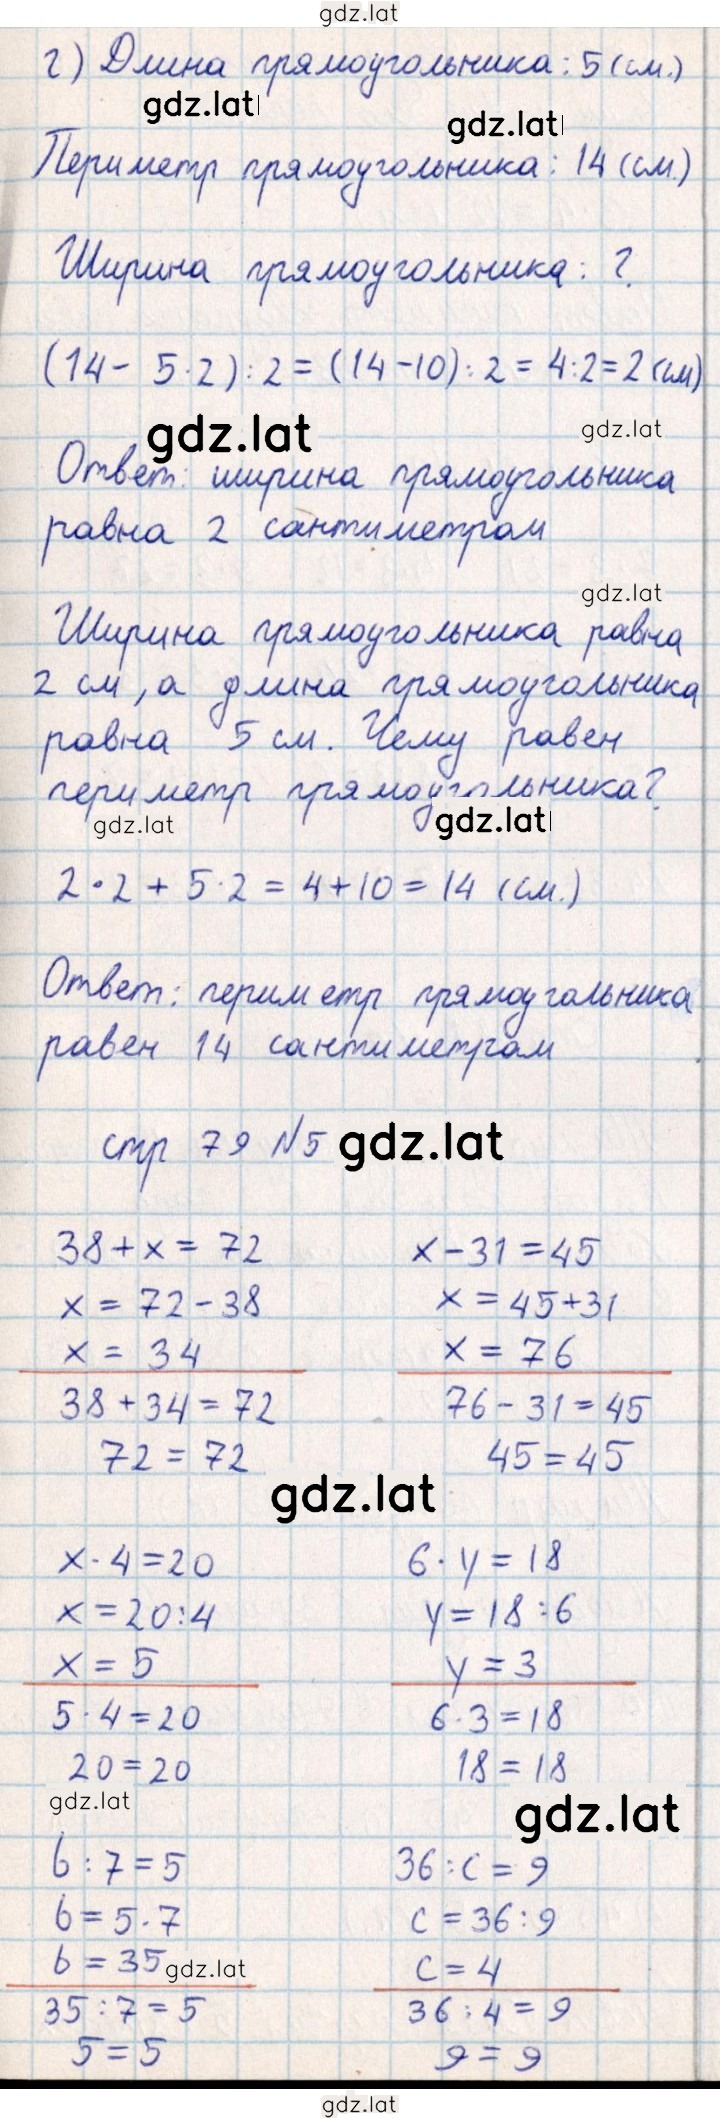 gdz.lat
г) Длина прямоугольника: 5 (см.)
gdz.lat
gdz.lat
Периметр прямоугольника: 14 (см.)
Ширина прямоугольника: ?
(14 - 5·2) : 2 = (14-10) : 2 = 4:2=2 (см)
gdz.lat
gdz.lat
Ответ: ширина прямоугольника
равна 2 сантиметрам
gdz.lat
Ширина прямоугольника равна
2 см, а длина прямоугольника
равна 5 см. Чему равен
периметр прямоугольника?
gdz.lat
gdz.lat
2·2 + 5·2 = 4+10 = 14 (см.)
Ответ: периметр прямоугольника
равен 14 сантиметрам
стр 79 №5 gdz.lat
38 + x = 72 x - 31 = 45
x = 72 - 38 x = 45+31
x = 34 x = 76
38 + 34 = 72 76 - 31 = 45
72 = 72 45 = 45
gdz.lat
x · 4 = 20 6 · y = 18
x = 20:4 y = 18 : 6
x = 5 y = 3
5 · 4 = 20 6·3 = 18
20 = 20 18 = 18
gdz.lat
gdz.lat
b : 7 = 5 36 : c = 9
b = 5·7 c = 36 : 9
b = 35 gdz.lat c = 4
35 : 7 = 5 36 : 4 = 9
5 = 5 9 = 9
gdz.lat